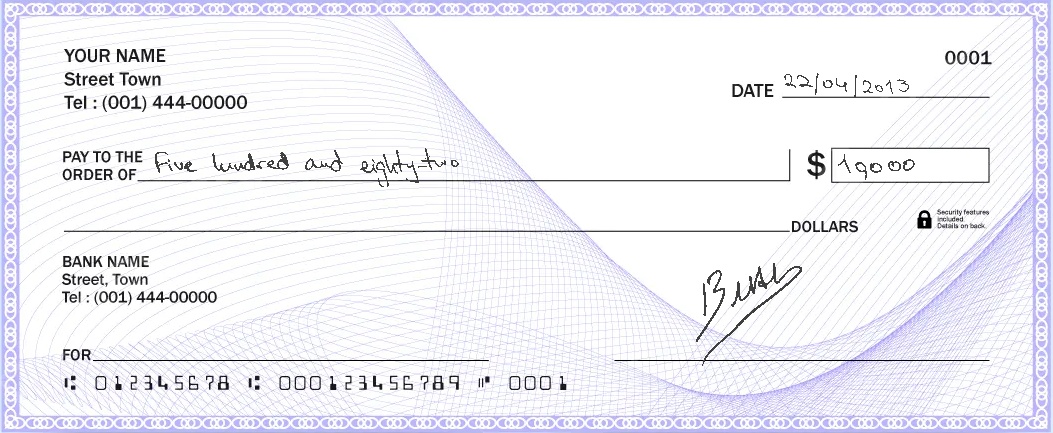 YOUR NAME
0001
Street Town
DATE 22/04/2013
Tel : (001) 444-00000
PAY TO THE
ORDER OF Five hundred and eighty-two $ 19000
DOLLARS
Security features
included.
Details on back.
BANK NAME
Street, Town
Tel : (001) 444-00000
FOR
⑆ 012345678 ⑆ 000123456789 ⑈ 0001